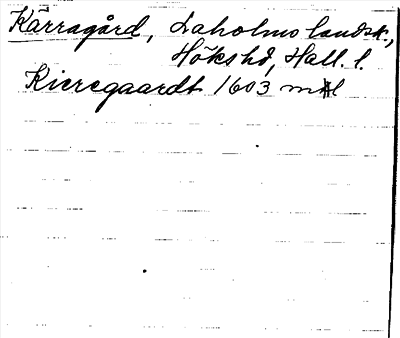 Kärragård, Laholms landsk.,
Hökshd, Hall. l.
Kieregaardt 1603 mtl